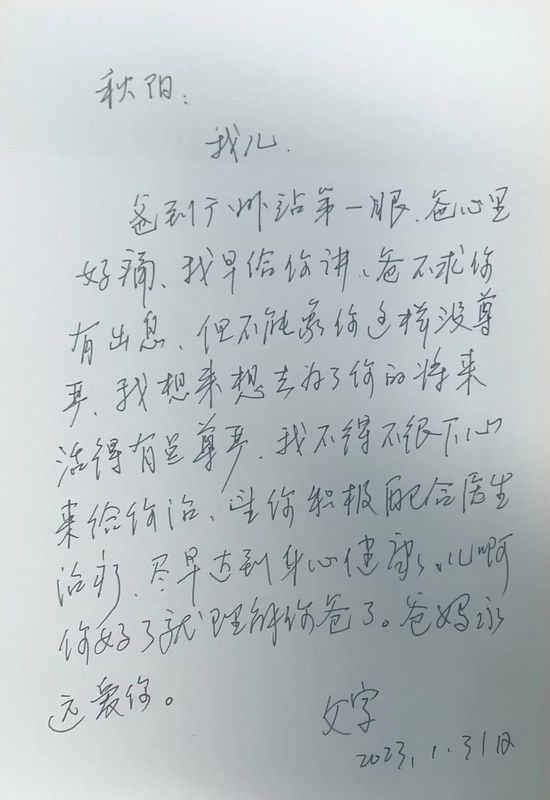 秋阳:
我儿.
爸到广州站第一眼、爸心里
好痛、我早给你讲、爸不求你
有出息、但不能象你这样没尊
严、我想来想去为了你的将来
活得有足尊严、我不得不狠下心
来给你治、望你积极配合医生
治疗、尽早达到身心健康、儿啊
你好了就理解你爸了。爸妈永
远爱你。
父字
2023.1.31日